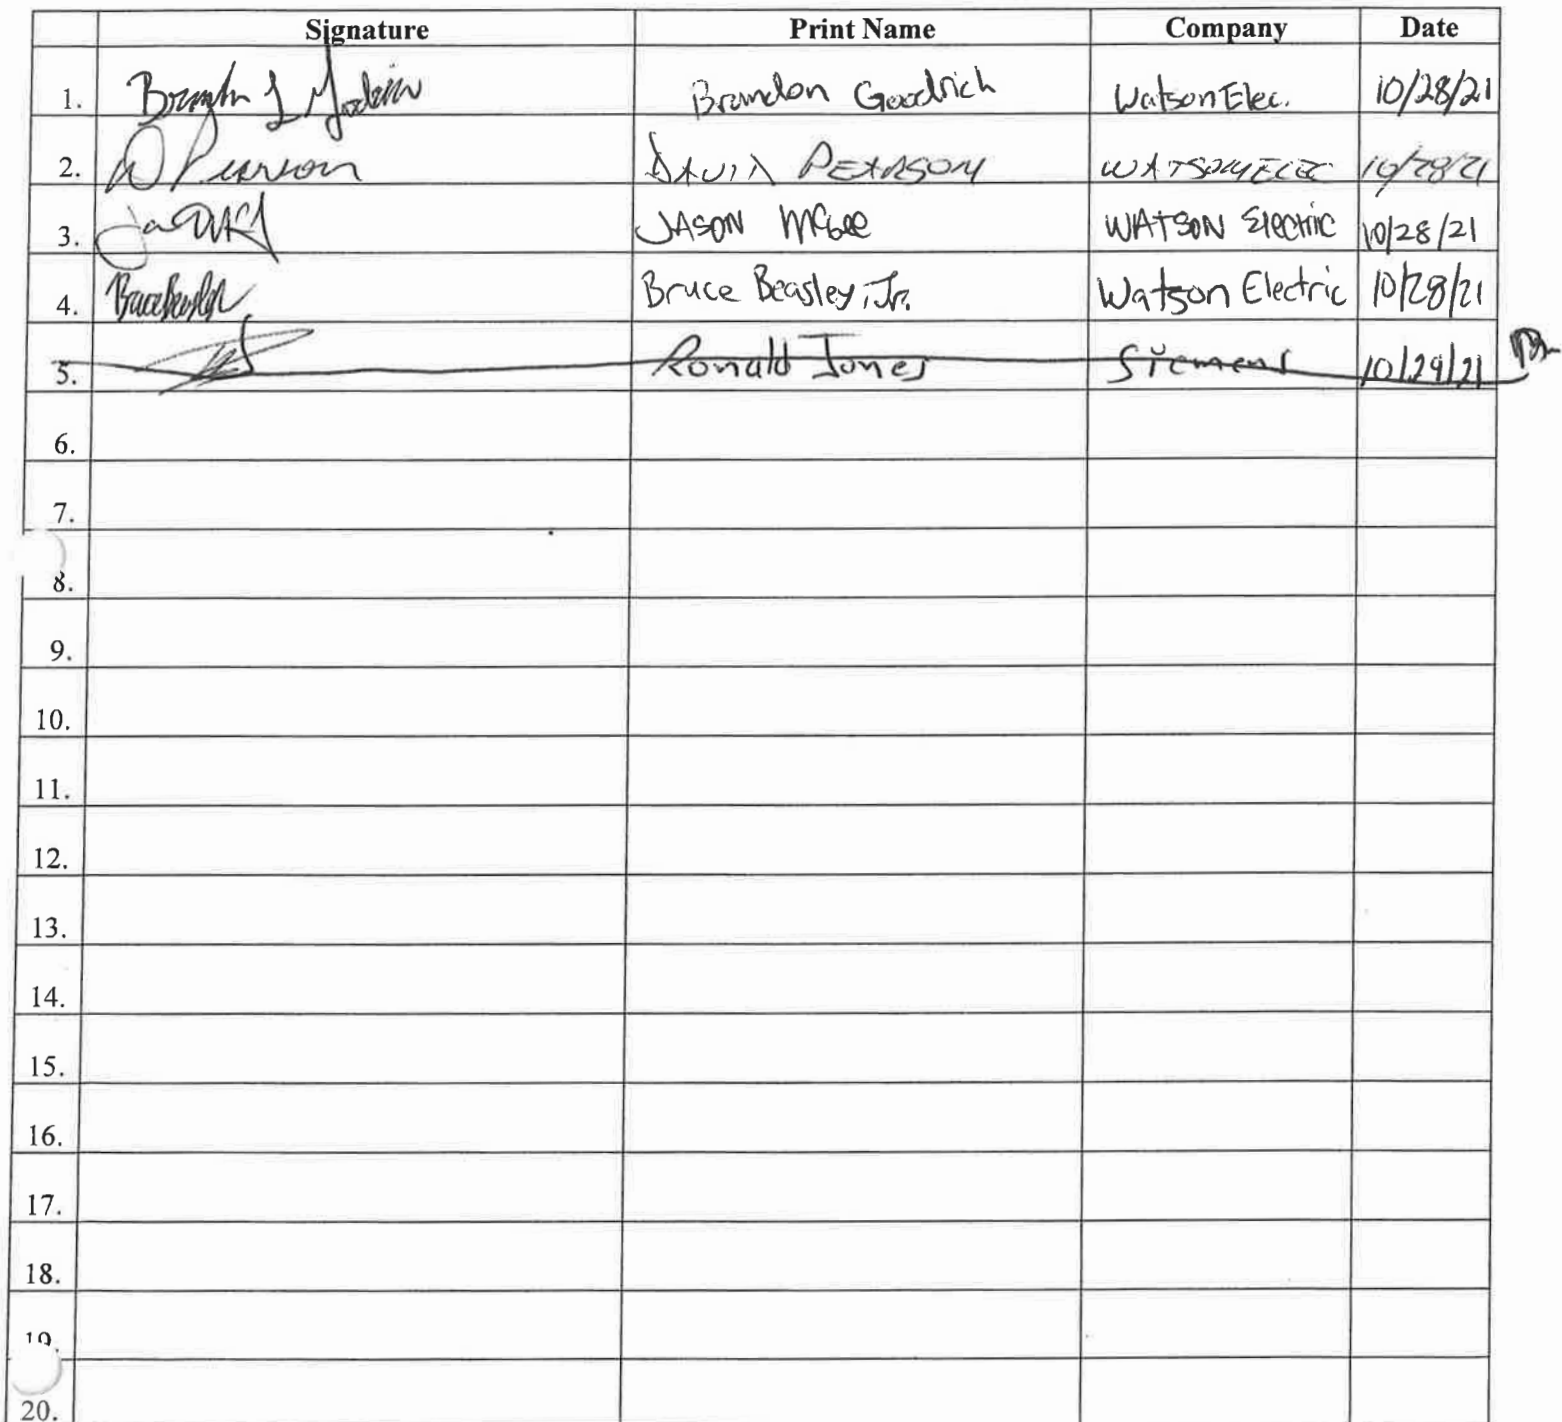 Signature Print Name Company Date
1. Brandon Goodrich Watson Elec. 10/28/21
2. D Pearson DAVID PEARSON WATSON ELEC 10/28/21
3. JASON McGee WATSON Electric 10/28/21
4. Bruce Beasley, Jr. Watson Electric 10/28/21
5. Ronald Jones Siemens 10/29/21
6.
7.
8.
9.
10.
11.
12.
13.
14.
15.
16.
17.
18.
19.
20.